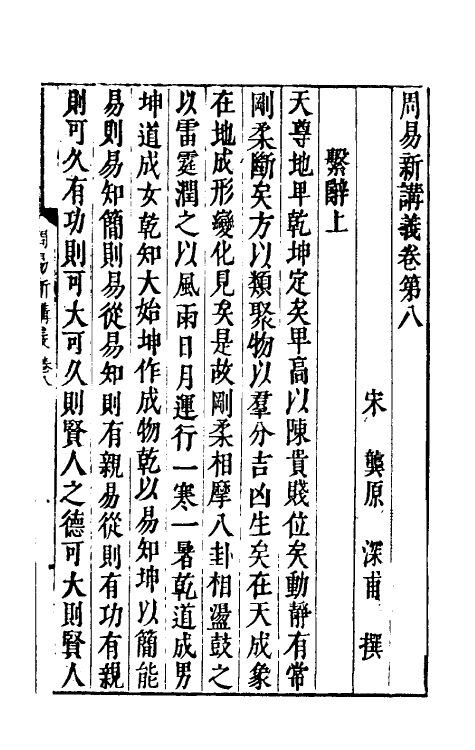 周易新講義卷第八
宋 龔原 深甫 撰
繫辭上
天尊地卑乾坤定矣卑高以陳貴賤位矣動靜有常
剛柔斷矣方以類聚物以羣分吉凶生矣在天成象
在地成形變化見矣是故剛柔相摩八卦相盪鼓之
以雷霆潤之以風雨日月運行一寒一暑乾道成男
坤道成女乾知大始坤作成物乾以易知坤以簡能
易則易知簡則易從易知則有親易從則有功有親
則可久有功則可大可久則賢人之德可大則賢人
周易新講義卷八